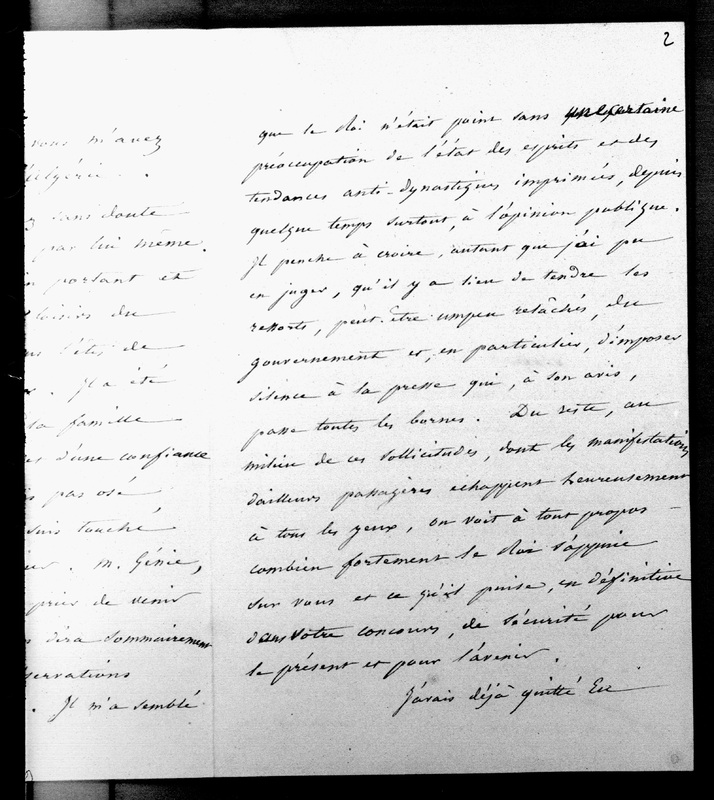 2
vous m'avez
l'Algérie.
sans doute
par lui même.
portant et
loisirs du
l'été de
. Il a été
sa famille
d'une confiance
pas osé
suis touché
. M. Génie,
prier de venir
dira sommairement
observations
. Il m'a semblé
que le Roi n'était point sans une certaine
préoccupation de l'état des esprits et des
tendances anti-dynastiques imprimées, depuis
quelque temps surtout, à l'opinion publique.
Il penche à croire, autant que j'ai pu
en juger, qu'il y a lieu de tendre les
ressorts, peut-être un peu relâchés, du
gouvernement et, en particulier, d'imposer
silence à la presse qui, à son avis,
passe toutes les bornes. Du reste, au
milieu de ces sollicitudes, dont les manifestations
d'ailleurs passagères échappent heureusement
à tous les yeux, on voit à tout propos
combien fortement le Roi s'appuie
sur vous et ce qu'il puise, en définitive
dans votre concours, de sécurité pour
le présent et pour l'avenir.
J'avais déjà quitté Eu